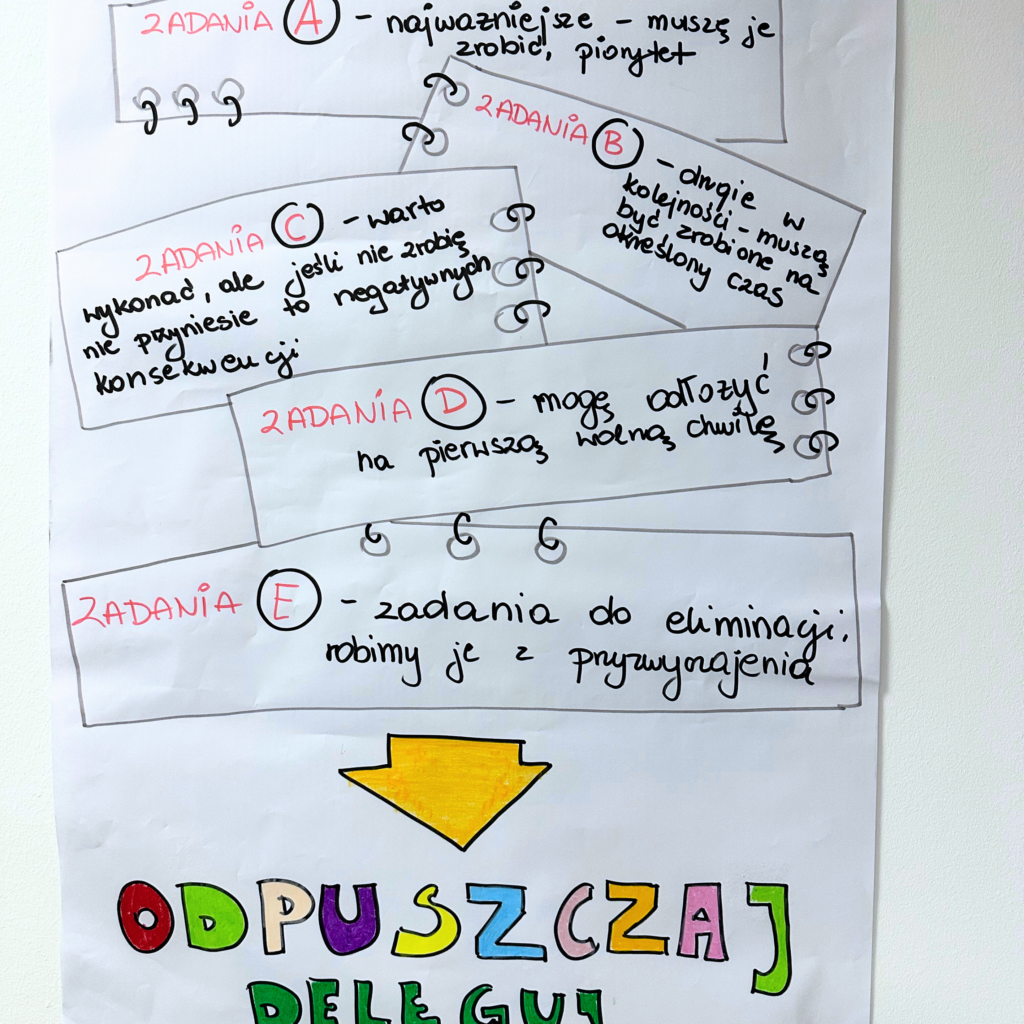 ZADANIA A - najważniejsze - muszę je
zrobić, piorytet
ZADANIA B - drugie w
kolejności - muszą
być zrobione na
określony czas
ZADANIA C - warto
wykonać, ale jeśli nie zrobię
nie przyniesie to negatywnych
konsekwencji
ZADANIA D - mogę odłożyć
na pierwszą wolną chwilę
ZADANIA E - zadania do eliminacji.
robimy je z pryzwyczajenia
ODPUSZCZAJ
DELEGUJ